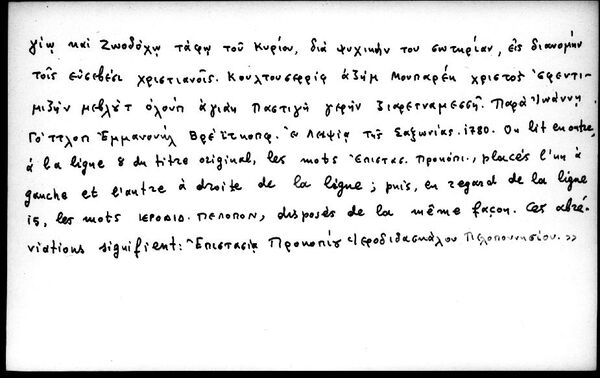 γίῳ καὶ Ζωοδόχῳ τάφῳ τοῦ Κυρίου, διὰ ψυχικὴν του σωτηρίαν, εἰς διανομὴν
τοῖς εὐσεβέσι χριστιανοῖς. Κουλτουσερρὶφ ἀζὴμ Μουπαρὲκ χριστὸς Ἐφεντι-
μιζὴν μεβλοὺτ ὀλοὺπ ἀγιὰν Παστιγὴ γερὴν ζιαρετναμεσσή. Παρὰ Ἰωάννῃ
Γόττλοπ Ἐμμανουὴλ Βρέϊτκοπφ. Ἐν Λειψίᾳ τῆς Σαξωνίας. 1780. On lit en outre,
à la ligne 8 du titre original, les mots Ἐπιστας. Προκοπι., placés l'un à
gauche et l'autre à droite de la ligne; puis, en regard de la ligne
15, les mots ΙΕΡΟΔΙΔ. ΠΕΛΟΠΟΝ, disposés de la même façon. Ces abré-
viations signifient: Ἐπιστασίᾳ Προκοπίου Ἱεροδιδασκάλου Πελοποννησίου.»